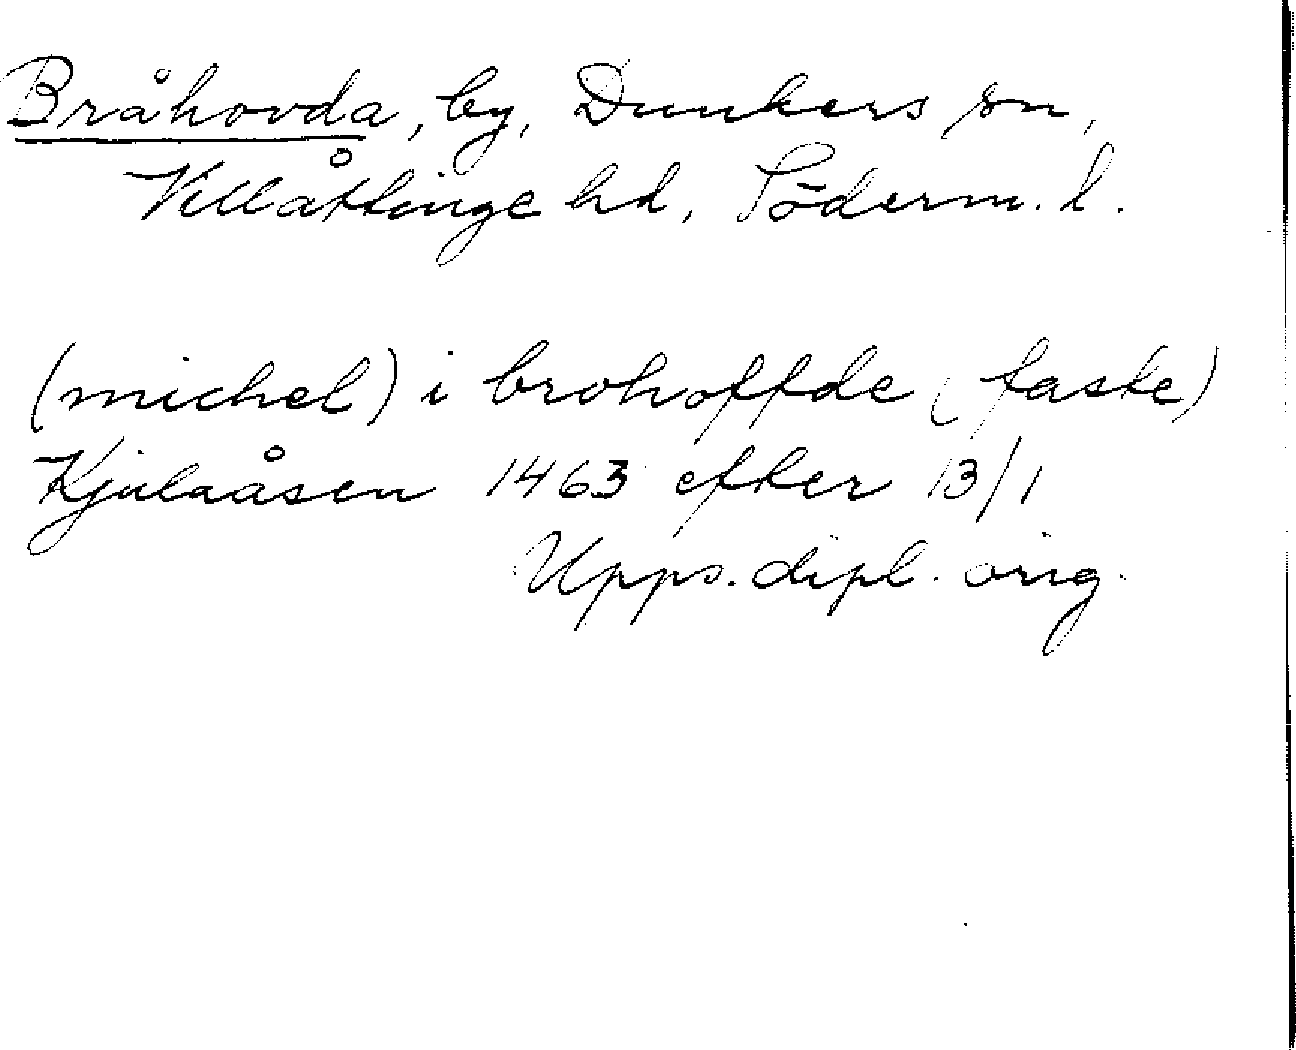 Bråhovda, by, Dunkers sn,
Villåttinge hd, Söderm. l.
(michel) i brohoffde (faste)
Kjulaåsen 1463 efter 13/1
Upps. dipl. orig.